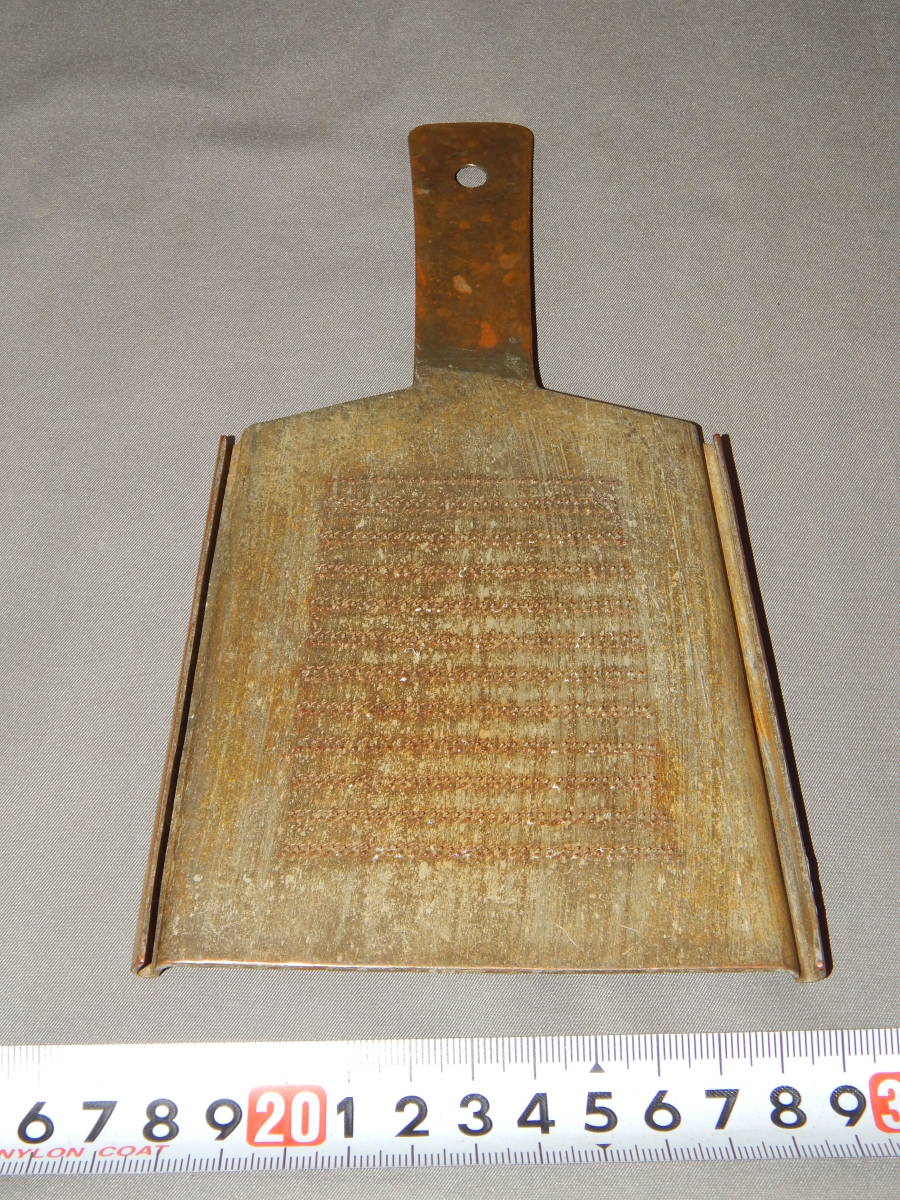 6 7 8 9 20 1 2 3 4 5 6 7 8 9 3
NYLON COAT